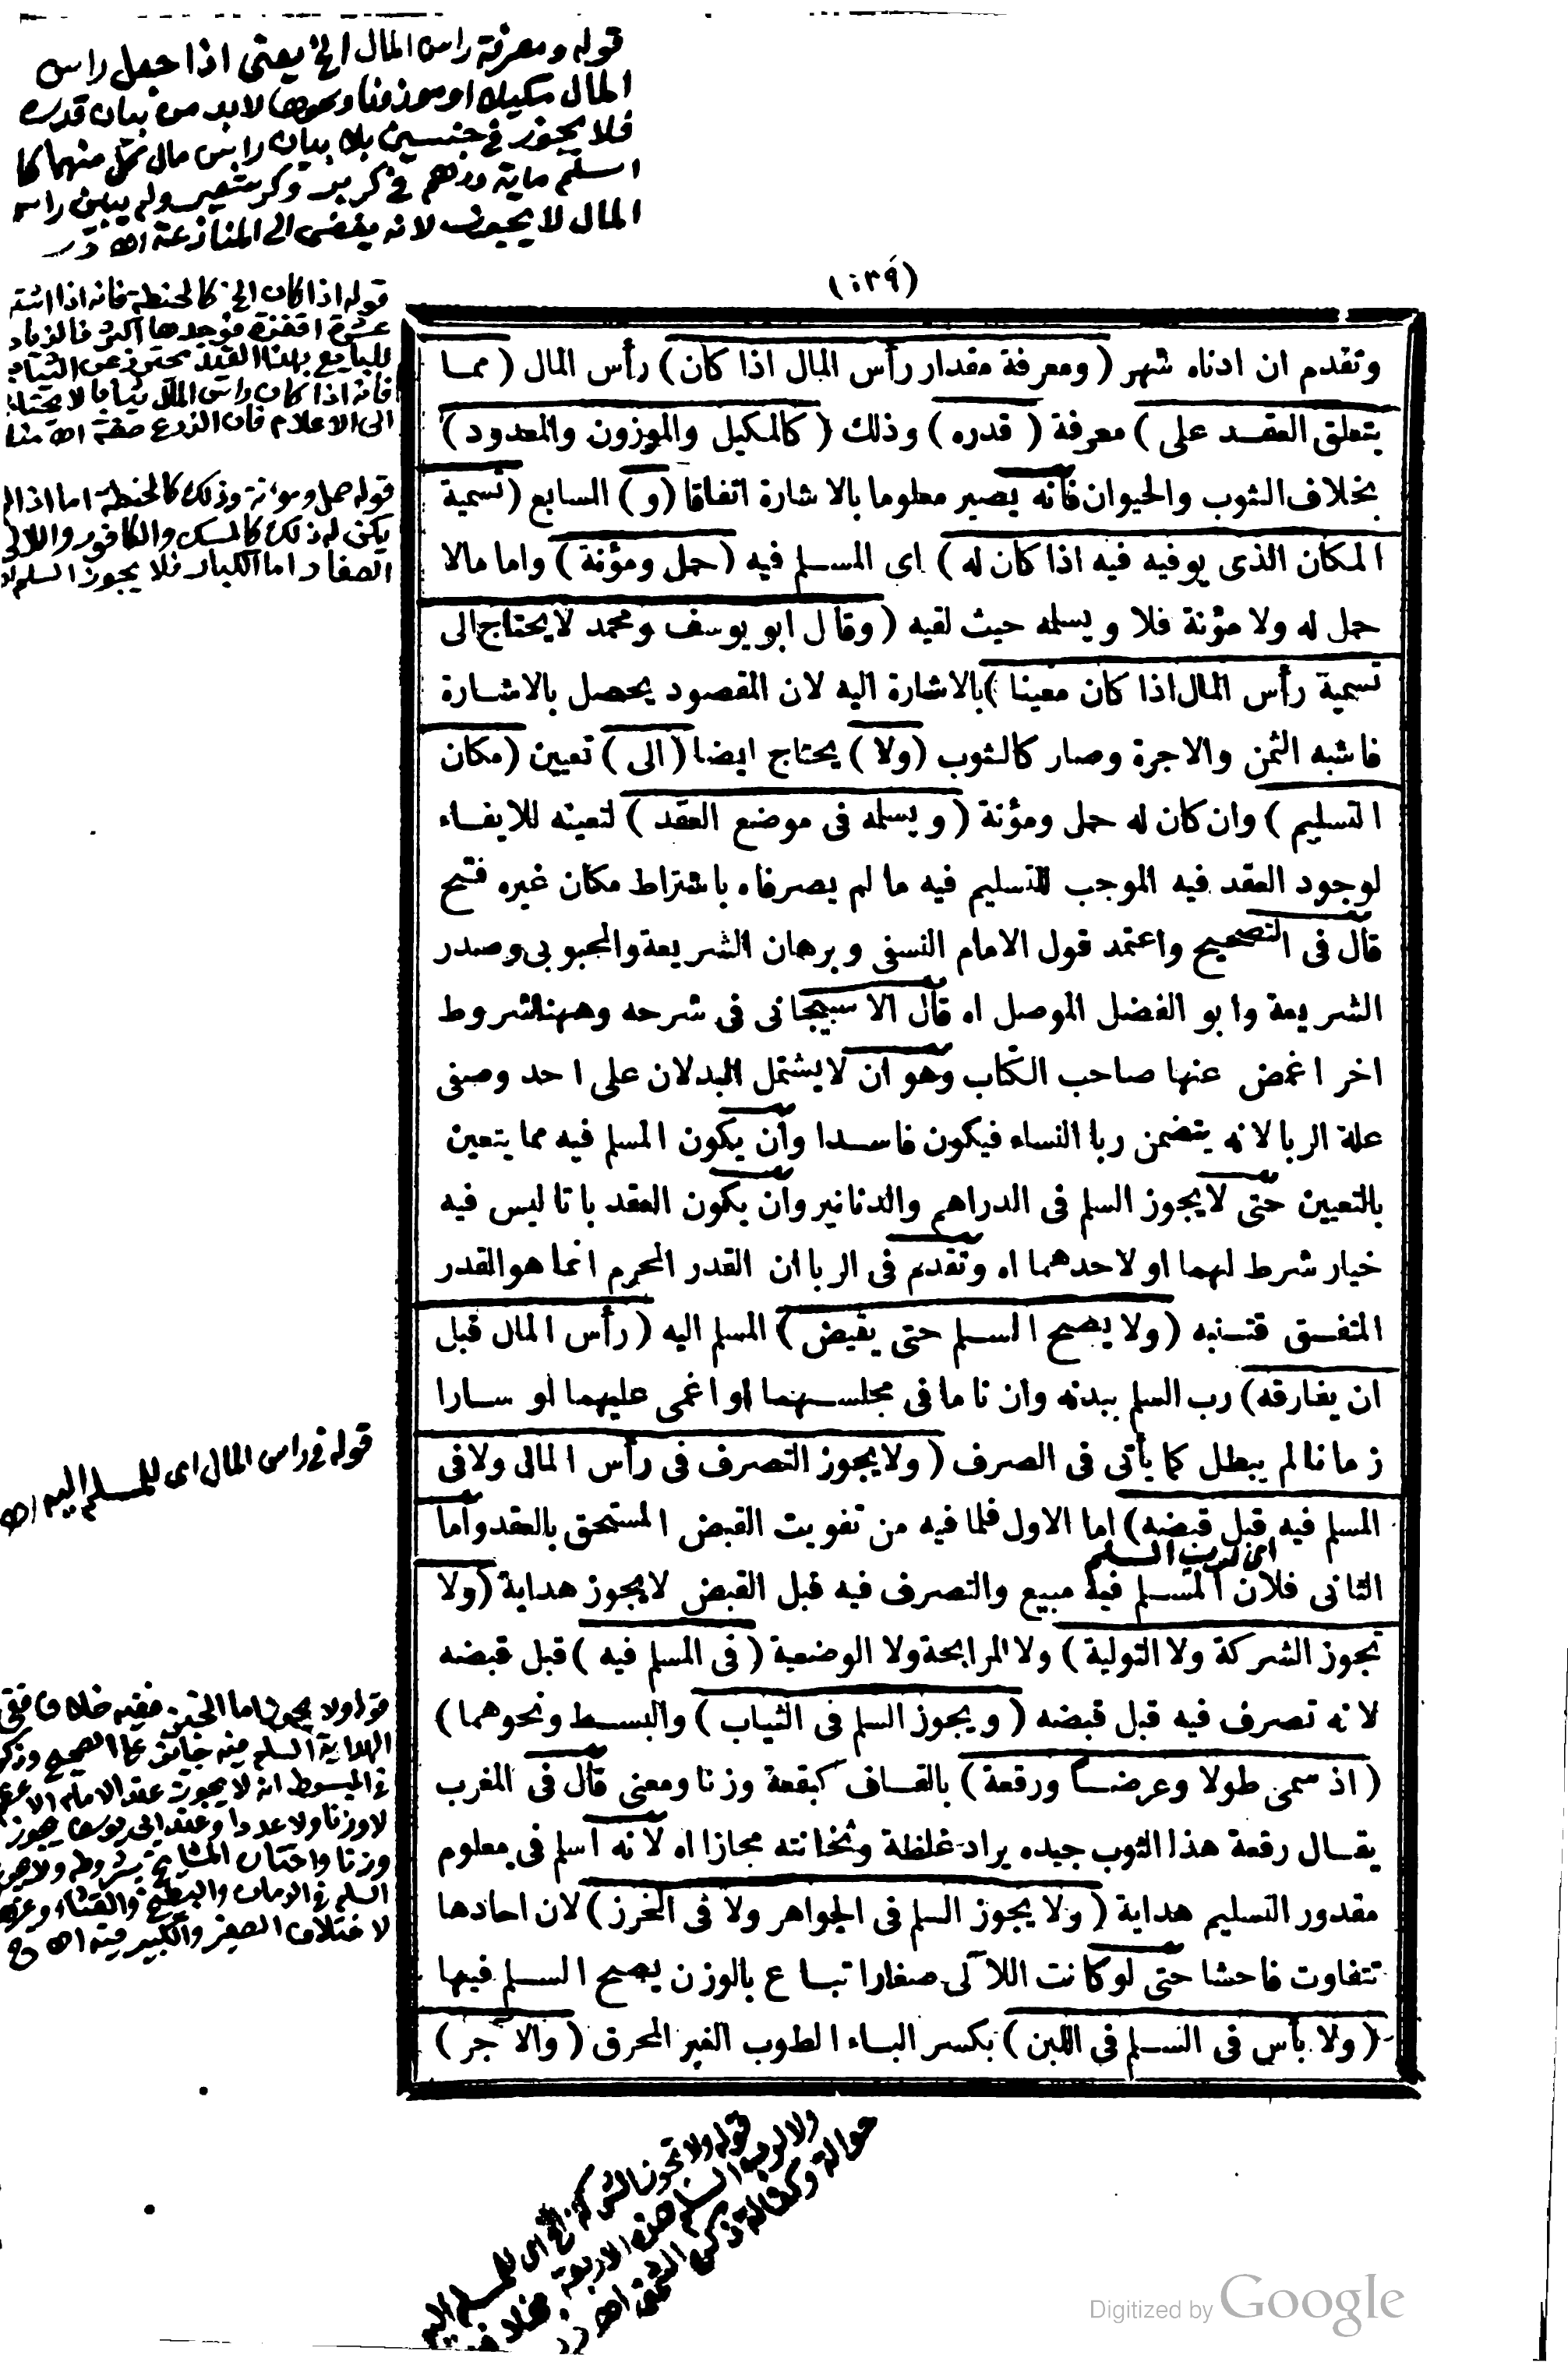 قوله ومعرفة راس المال الخ يعنى اذا جعل راس
المال مكيلا او موزونا ونحوهما لابد من بيان قدره
فلا يجوز في جنسين بلا بيان راس مال كل منهما كما
اسلم ماية درهم في كر بر وكر شعير ولم يبين راس
المال لا يجوز لانه يفضى الى المنازعة اه
(١٣٩)
قوله اذا كان الخ كالحنطة فانه اذا
عشرة اقفزة فوجدها اكثر فالزياد
للبايع بهذا القيد يحترز عن الثياب
فانه اذا كان راس المال ثيابا لا يحتاج
الى الاعلام فان الذرع صفة اه
قوله حمل ومؤنة وذلك كالحنطة اما اذا لم
يكن له ذلك كالمسك والكافور واللالى
الصغار اما الكبار فلا يجوز السلم
وتقدم ان ادناه شهر (ومعرفة مقدار رأس المال اذا كان) رأس المال (مما
يتعلق العقد على) معرفة (قدره) وذلك (كالمكيل والموزون والمعدود)
بخلاف الثوب والحيوان فانه يصير معلوما بالاشارة اتفاقا (و) السابع (تسمية
المكان الذى يوفيه فيه اذا كان له) اى المسلم فيه (حمل ومؤنة) واما مالا
حمل له ولا مؤنة فلا ويسلمه حيث لقيه (وقال ابو يوسف ومحمد لا يحتاج الى
تسمية رأس المال اذا كان معينا) بالاشارة اليه لان المقصود يحصل بالاشارة
فاشبه الثمن والاجرة وصار كالثوب (ولا) يحتاج ايضا (الى) تعيين (مكان
التسليم) وان كان له حمل ومؤنة (ويسلمه فى موضع العقد) لتعينه للايفاء
لوجود العقد فيه الموجب للتسليم فيه ما لم يصرفاه باشتراط مكان غيره فتح
قال فى التصحيح واعتمد قول الامام النسفى وبرهان الشريعة والمحبوبى وصدر
الشريعة وابو الفضل الموصل اه قال الاسبيجانى فى شرحه وههنا شروط
اخر اغمض عنها صاحب الكتاب وهو ان لا يشتمل البدلان على احد وصفى
علة الربا لانه يتضمن ربا النساء فيكون فاسدا وان يكون المسلم فيه مما يتعين
بالتعيين حتى لا يجوز السلم فى الدراهم والدنانير وان يكون العقد باتا ليس فيه
خيار شرط لهما او لاحدهما اه وتقدم فى الربا ان القدر المحرم انما هو القدر
المتفق فتنبه (ولا يصح السلم حتى يقبض) المسلم اليه (رأس المال قبل
ان يفارقه) رب السلم ببدنه وان ناما فى مجلسهما او اغمى عليهما او سارا
زمانا لم يبطل كما يأتى فى الصرف (ولا يجوز التصرف فى رأس المال ولا فى
قوله في راس المال اى للمسلم اليه اه
المسلم فيه قبل قبضه) اما الاول فلما فيه من تفويت القبض المستحق بالعقد واما
اى لرب السلم
الثانى فلان المسلم فيه مبيع والتصرف فيه قبل القبض لا يجوز هداية (ولا
تجوز الشركة ولا التولية) ولا المرابحة ولا الوضعية (فى المسلم فيه) قبل قبضه
لانه تصرف فيه قبل قبضه (ويجوز السلم فى الثياب) والبسط ونحوهما)
(اذ سمى طولا وعرضا ورقعة) بالقاف كبقعة وزنا ومعنى قال فى المغرب
يقال رقعة هذا الثوب جيده يراد غلظة وثخانته مجازا اه لانه اسلم فى معلوم
مقدور التسليم هداية (ولا يجوز السلم فى الجواهر ولا فى الخرز) لان احادها
تتفاوت فاحشا حتى لو كانت اللآلى صغارا تباع بالوزن يصح السلم فيها
(ولا بأس فى السلم فى اللبن) بكسر الباء الطوب الغير المحرق (والآجر)
قوله ولا يجوز اما الخبز ففيه خلاف ففى
الهداية السلم فيه جائز على الصحيح وذكر
في المبسوط انه لا يجوز عند الامام
لا وزنا ولا عددا وعند ابى يوسف يجوز
وزنا واختار المشايخ بشروطه ولا يجوز
السلم في الرمان والبطيخ والقثاء
لاختلاف الصغير والكبير فيه اه
قوله ولا تجوز الشركة الخ اى للمسلم اليه
ولا لرب السلم هذه الاربعة بخلاف
حوالة وكفالة
Digitized by Google